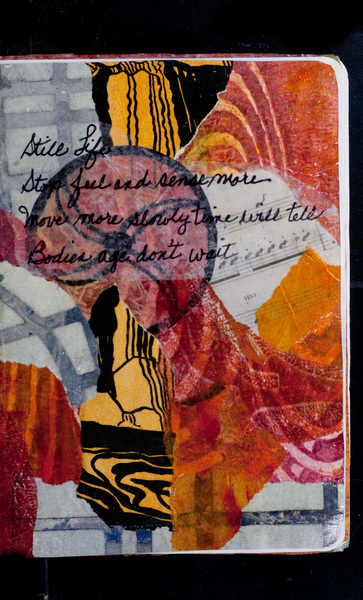 Still Life
Stop feel and sense more
Move more slowly time will tell
Bodies age don't wait